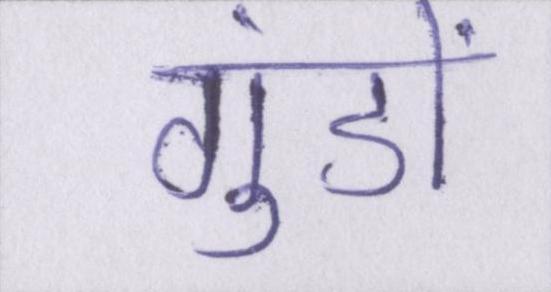 गुंडों